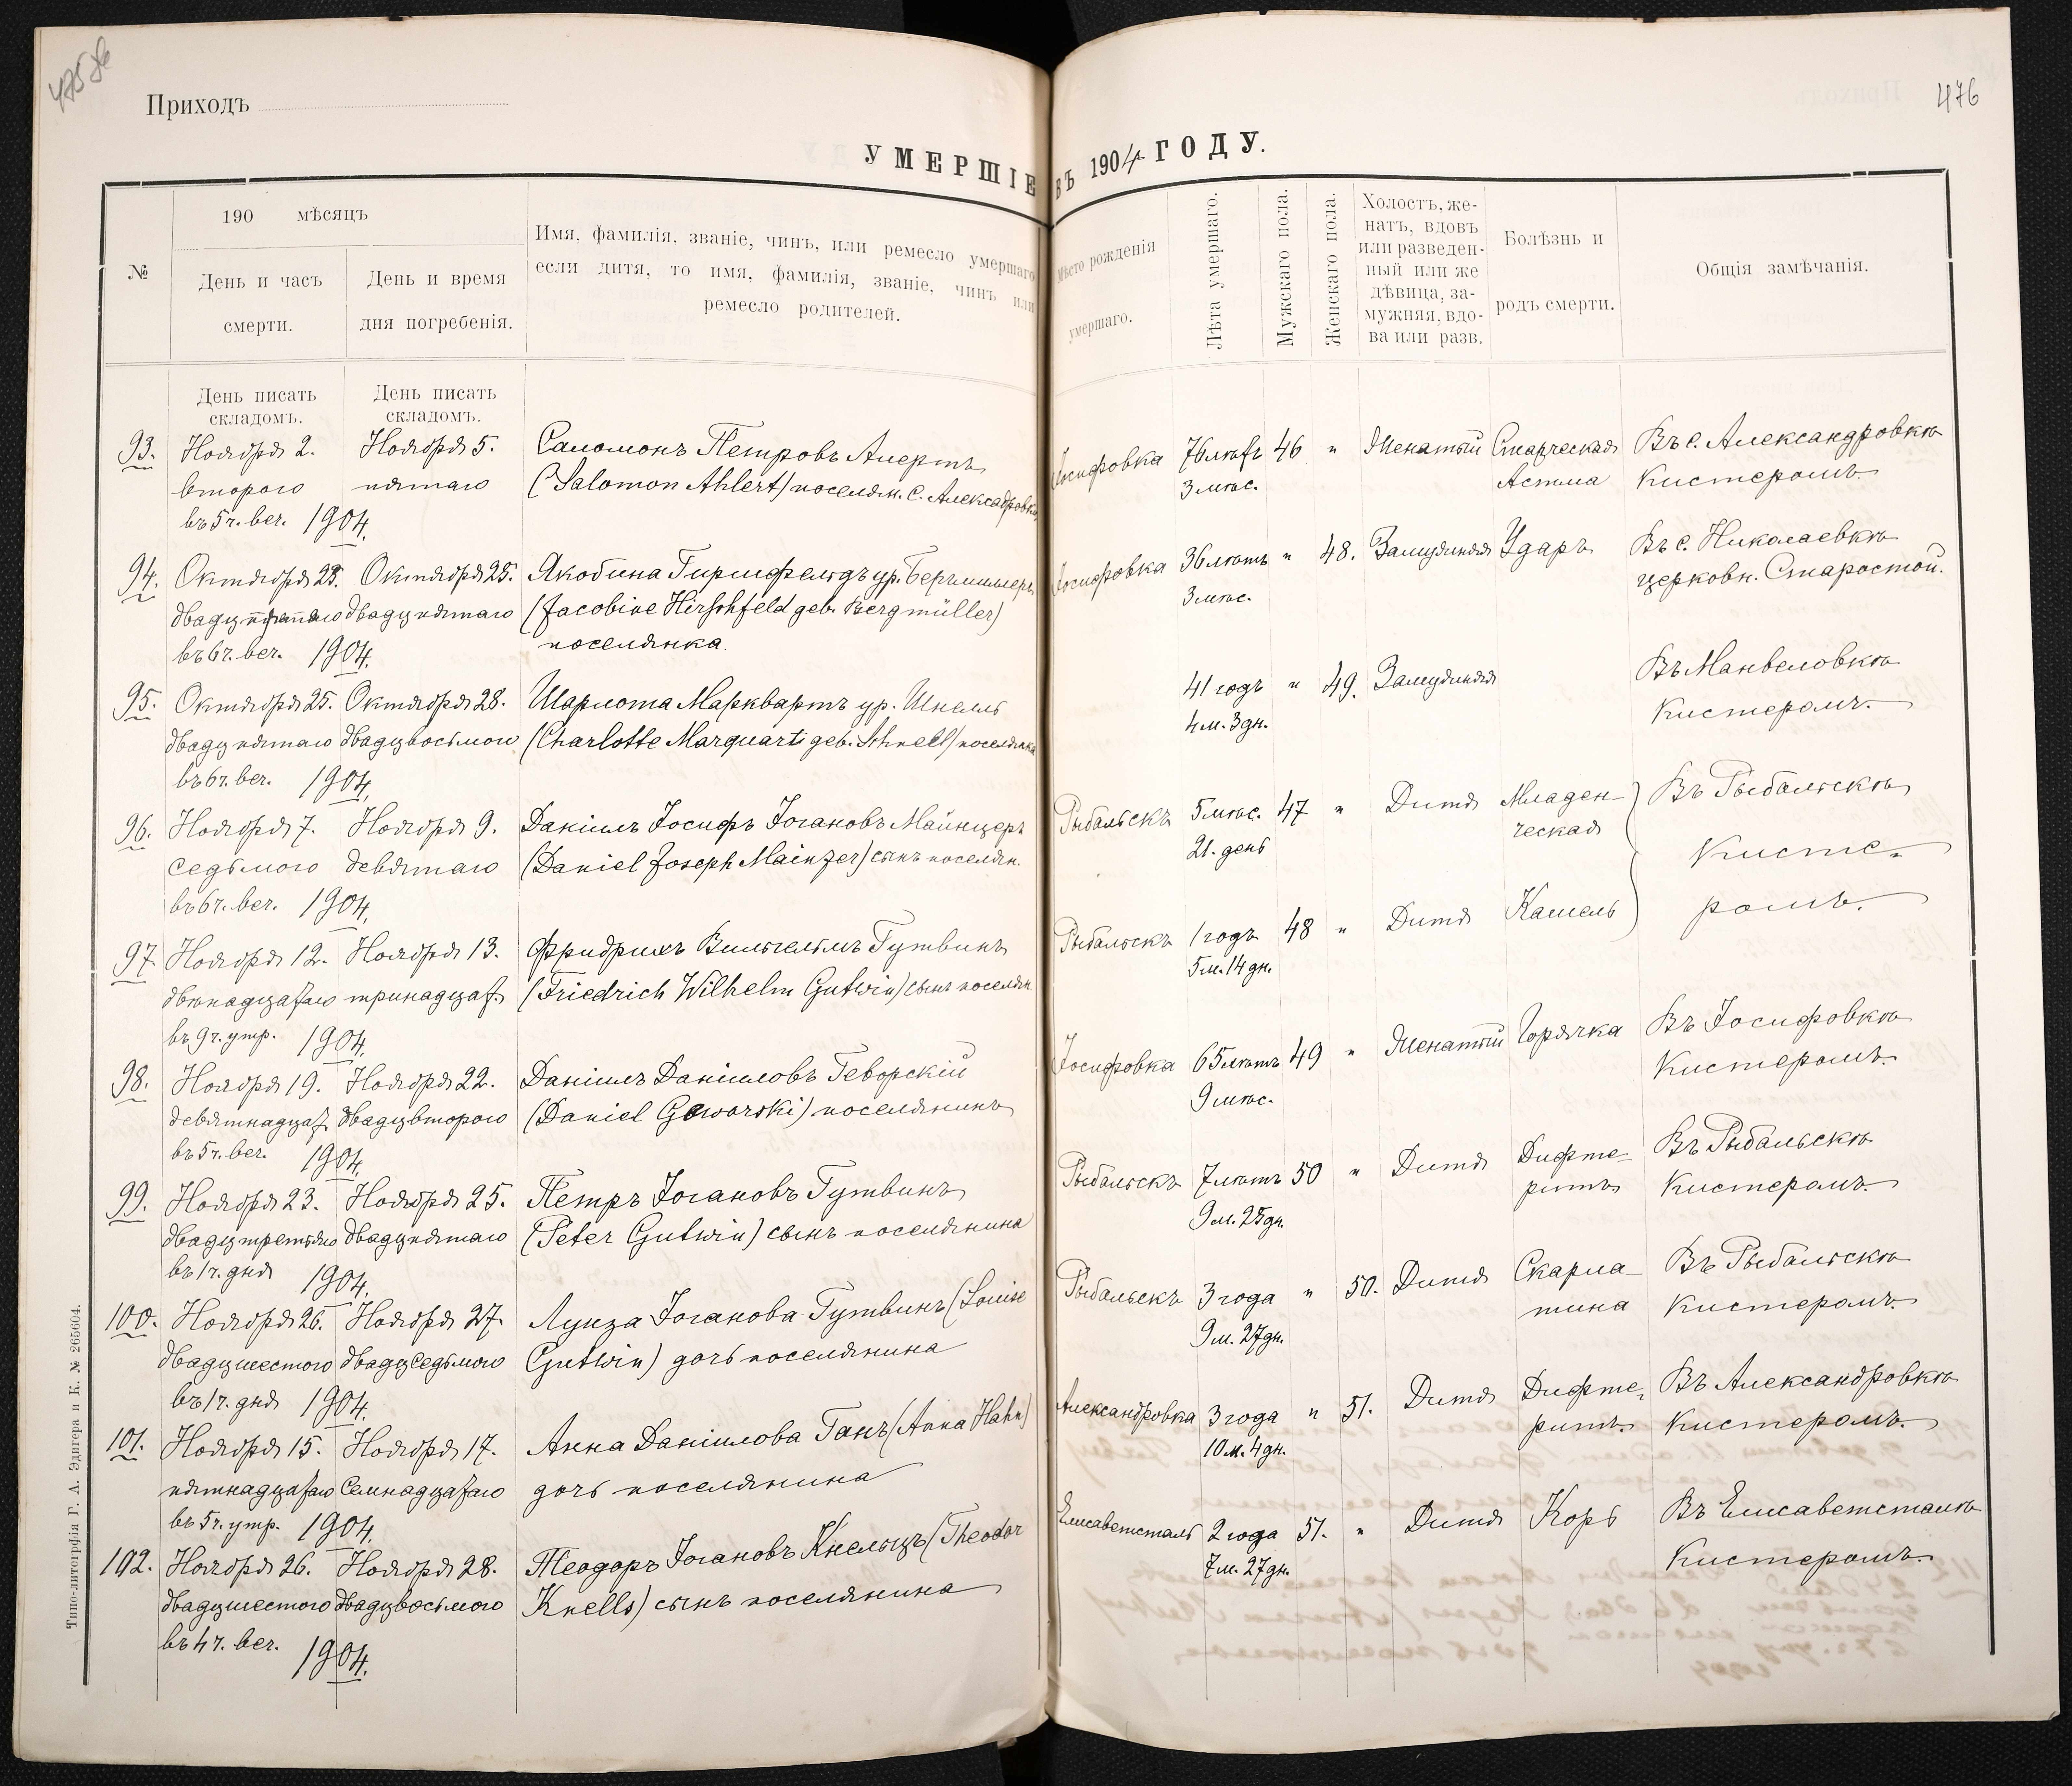 476
Приходъ
УМЕРШІЕ ВЪ 1904 ГОДУ.
№
190 мѣсяцъ
День и часъ
смерти.
День и время
дня погребенія.
Имя, фамилія, званіе, чинъ, или ремесло умершаго
если дитя, то имя, фамилія, званіе, чинъ или
ремесло родителей.
Мѣсто рожденія
умершаго.
Лѣта умершаго.
Мужскаго пола.
Женскаго пола.
Холостъ, же-
натъ, вдовъ
или разведен-
ный или же
дѣвица, за-
мужняя, вдо-
ва или разв.
Болѣзнь и
родъ смерти.
Общія замѣчанія.
День писать
складомъ.
День писать
складомъ.
93. Ноября 2. Ноября 5. Саломонъ Петровъ Алертъ Іосифовка 76 лѣтъ 46 " Женатый Старческая Въ с. Александровкѣ
второго пятаго (Salomon Ahlert) поселян. с. Александровки 3 мѣс. Астма Кистеромъ.
въ 5 ч. веч. 1904.
94. Октября 25. Октября 25. Якобина Гиршфельдъ ур. Бергмиллеръ Іосифовка 36 лѣтъ " 48. Замужняя Ударъ Въ с. Николаевкѣ
двадц двадцпятаго (Jacobine Hirschfeld geb. Bergmüller) 3 мѣс. церковн. Старостой.
въ 6 ч. веч. 1904. поселянка.
95. Октября 25. Октября 28. Шарлота Марквартъ ур. Шнелль 41 годъ " 49. Замужняя Въ Манвеловкѣ
двадцпятаго двадцвосьмого (Charlotte Marquart geb. Schnell) поселянка 4 м. 3 дн. Кистеромъ.
въ 6 ч. веч. 1904.
96. Ноября 7. Ноября 9. Даніилъ Іосифъ Іогановъ Майнцеръ Рыбальскъ 5 мѣс. 47 " Дитя Младен- Въ Рыбальскѣ
седьмого девятаго (Daniel Joseph Mainzer) сынъ поселян. 21. день ческая Кисте-
въ 6 ч. веч. 1904.
97. Ноября 12. Ноября 13. Фридрихъ Вильгельмъ Гутвинъ Рыбальскъ 1 годъ 48 " Дитя Кашель ромъ.
двѣнадцатаго тринадцат. (Friedrich Wilhelm Gutwin) сынъ поселян. 5 м. 14 дн.
въ 9 ч. утр. 1904.
98. Ноября 19. Ноября 22. Даніилъ Даніиловъ Геворскій Іосифовка 65 лѣтъ 49 " Женатый Горячка Въ Іосифовкѣ
девятнадцат. двадцвторого (Daniel Geworski) поселянинъ 9 мѣс. Кистеромъ.
въ 5 ч. веч. 1904.
99. Ноября 23. Ноября 25. Петръ Іогановъ Гутвинъ Рыбальскъ 7 лѣтъ 50 " Дитя Дифте- Въ Рыбальскѣ
двадцтретьяго двадцпятаго (Peter Gutwin) сынъ поселянина 9 м. 25 дн. ритъ Кистеромъ.
въ 1 ч. дня 1904.
100. Ноября 26. Ноября 27. Луиза Іоганова Гутвинъ (Louise Рыбальскъ 3 года " 50. Дитя Скарла- Въ Рыбальскѣ
двадцшестого двадцседьмого Gutwin) дочь поселянина 9 м. 27 дн. тина Кистеромъ.
въ 1 ч. дня 1904.
101. Ноября 15. Ноября 17. Анна Даніилова Ганъ (Anna Hahn) Александровка 3 года " 51. Дитя Дифте- Въ Александровкѣ
пятнадцатаго семнадцатаго дочь поселянина 10 м. 4 дн. ритъ. Кистеромъ.
въ 5 ч. утр. 1904.
102. Ноября 26. Ноября 28. Теодоръ Іогановъ Кнельцъ (Theodor Елисаветсталь 2 года 51. " Дитя Корь Въ Елисаветсталѣ
двадцшестого двадцвосьмого Knells) сынъ поселянина 7 м. 27 дн. Кистеромъ.
въ 4 ч. веч. 1904.
Типо-литографія Г. А. Эдигера и К. № 265604.